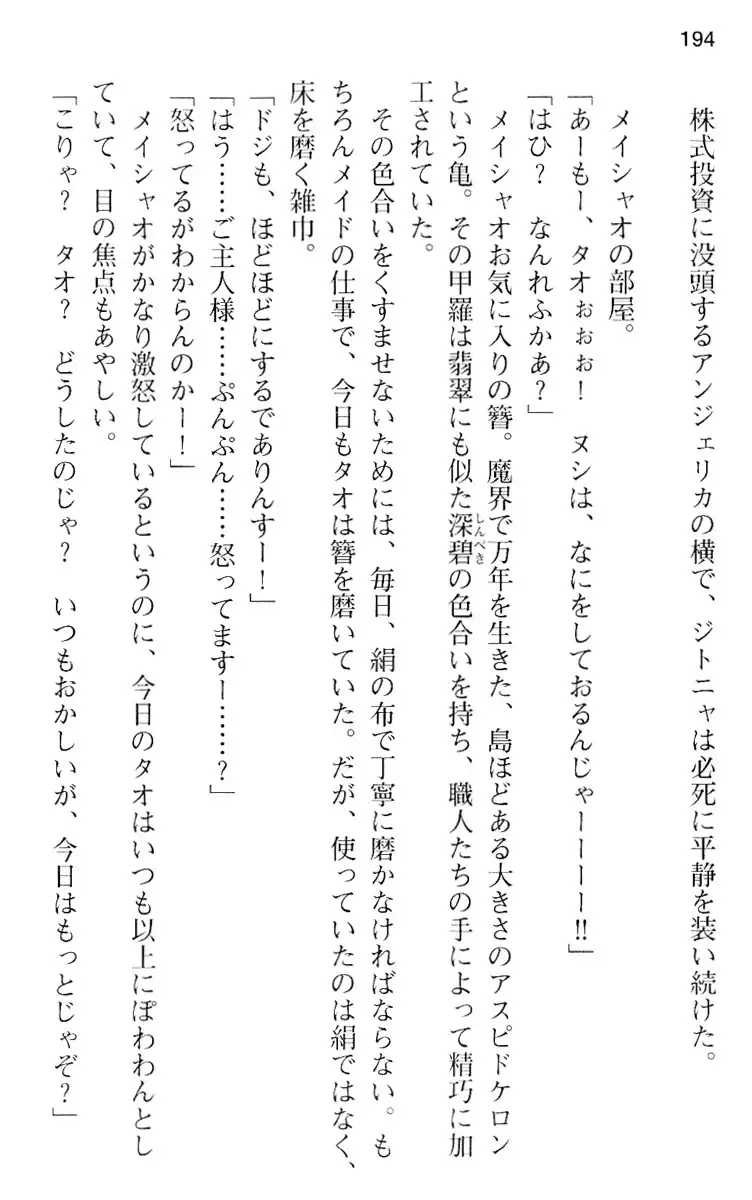 194
株式投資に没頭するアンジェリカの横で、ジトニャは必死に平静を装い続けた。
メイシャオの部屋。
「あーもー、タオぉぉぉ！　ヌシは、なにをしておるんじゃーーーー!!」
「はひ？　なんれふかあ？」
メイシャオお気に入りの簪。魔界で万年を生きた、島ほどある大きさのアスピドケロン
という亀。その甲羅は翡翠にも似た深碧の色合いを持ち、職人たちの手によって精巧に加
しんぺき
工されていた。
その色合いをくすませないためには、毎日、絹の布で丁寧に磨かなければならない。も
ちろんメイドの仕事で、今日もタオは簪を磨いていた。だが、使っていたのは絹ではなく、
床を磨く雑巾。
「ドジも、ほどほどにするでありんすー！」
「はう……ご主人様……ぷんぷん……怒ってますー……？」
「怒ってるがわからんのかー！」
メイシャオがかなり激怒しているというのに、今日のタオはいつも以上にぽわわんとし
ていて、目の焦点もあやしい。
「こりゃ？　タオ？　どうしたのじゃ？　いつもおかしいが、今日はもっとじゃぞ？」